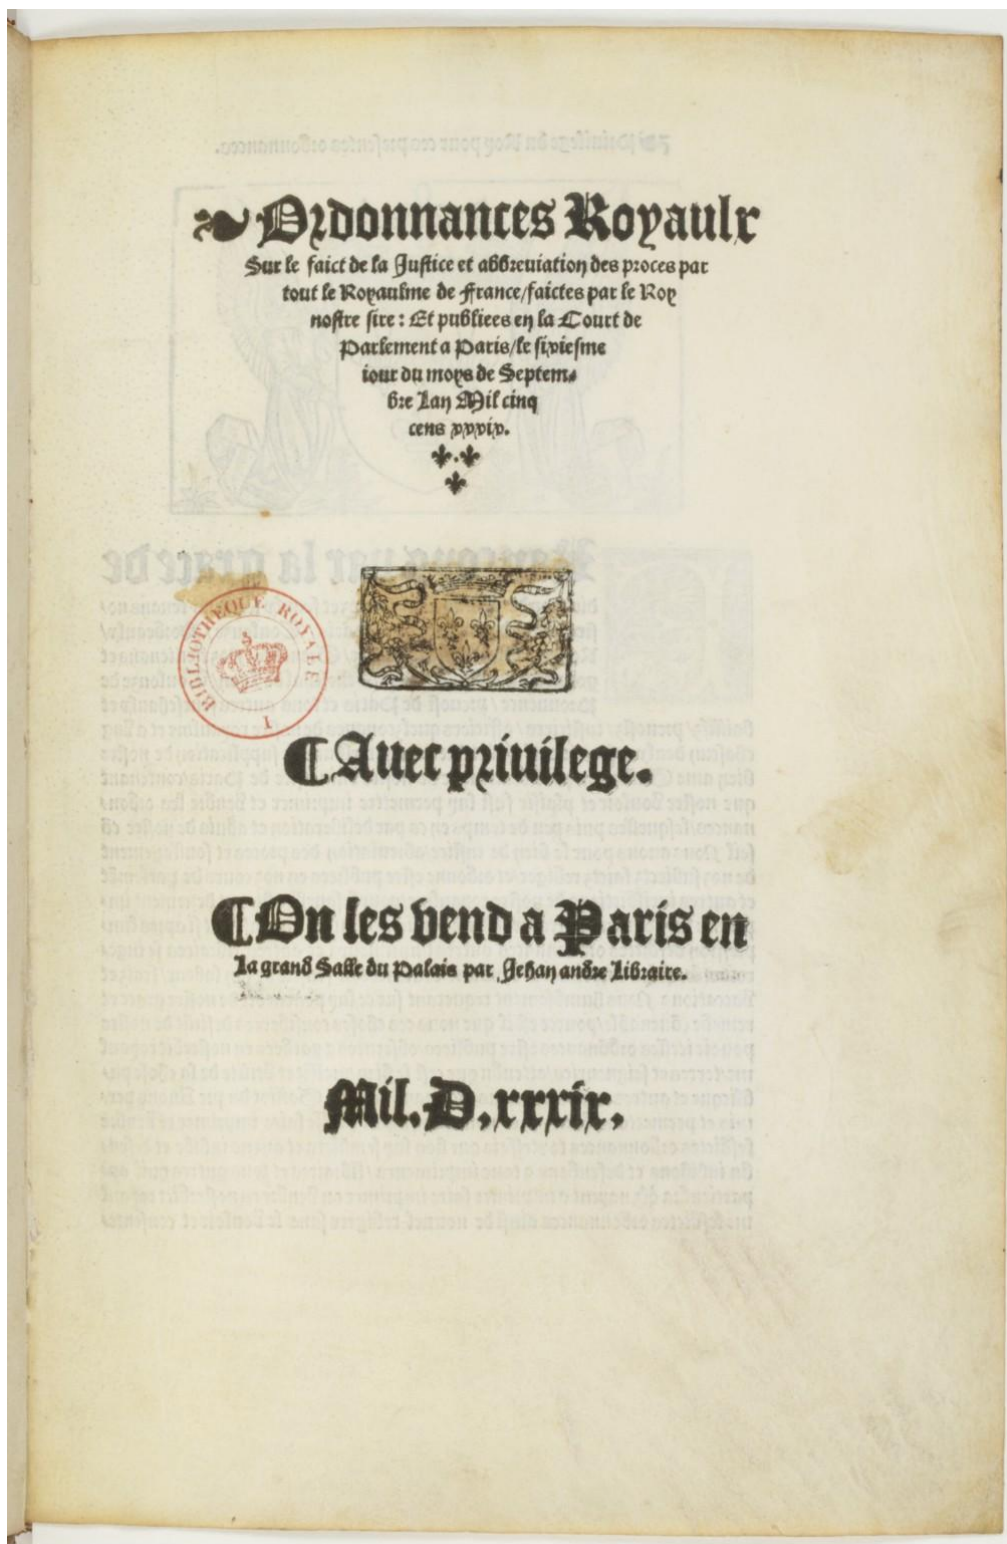 Ordonnances Royaulx
Sur le faict de la Justice et abbreuiation des proces par
tout le Royaulme de France/faictes par le Roy
nostre sire : Et publiees en la Court de
Parlement a Paris/le sixiesme
iour du moys de Septem-
bre Lan Mil cinq
cens xxxix.
BIBLIOTHEQUE ROYALE
I
¶ Auec priuilege.
¶ On les vend a Paris en
La grand Salle du Palais par Jehan andre Libraire.
Mil. D. xxxix.